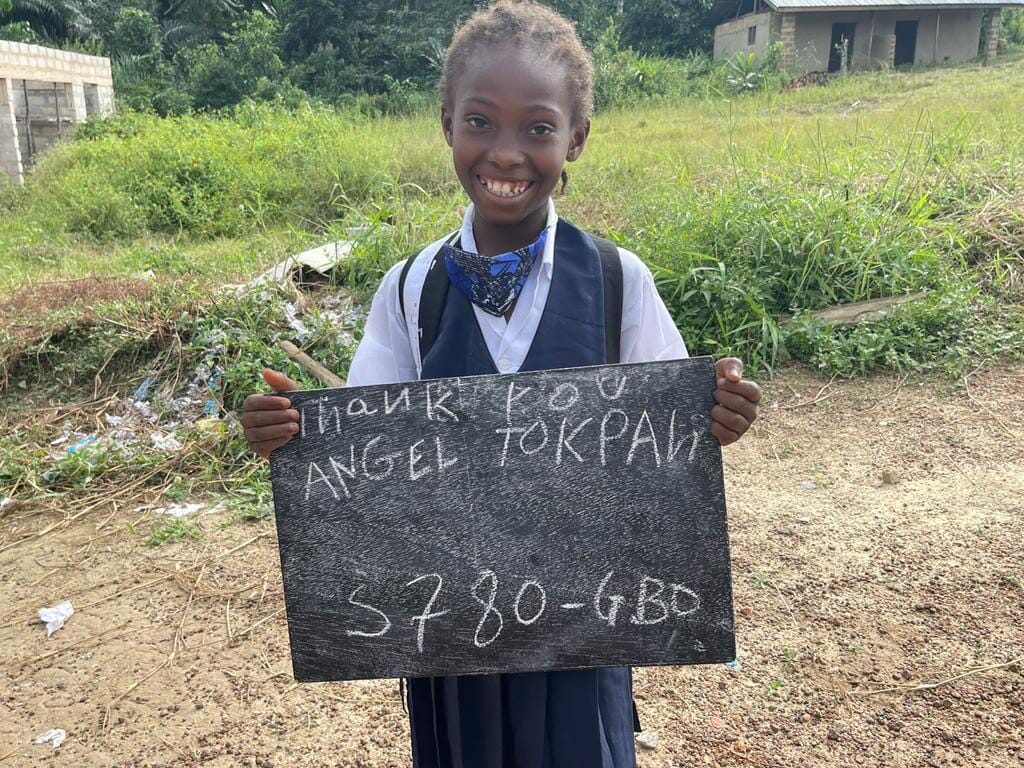 Thank YOU
ANGEL TOKPAH
S780-GBO